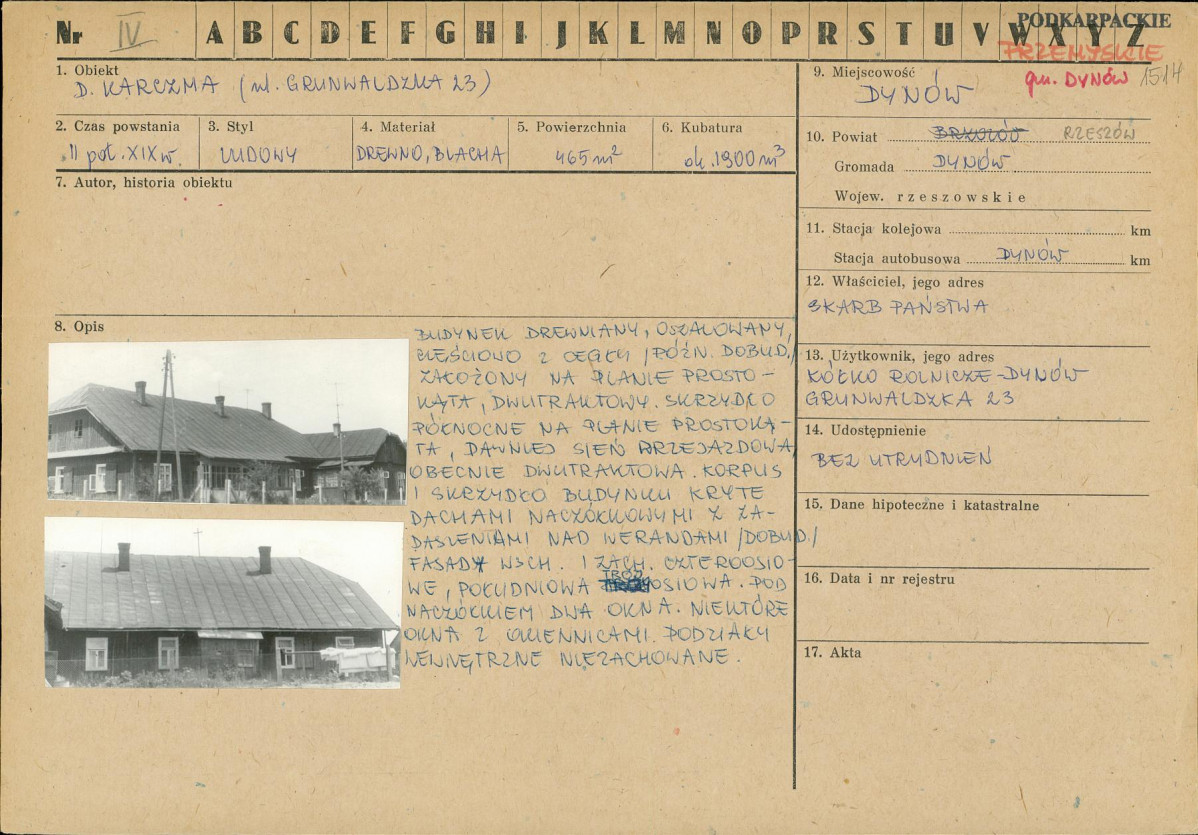 Nr IV A B C D E F G H I J K L M N O P R S T U V W X Y Z
PODKARPACKIE
PRZEMYSKIE
gm. DYNÓW 1514
1. Obiekt
D. KARCZMA (ul. GRUNWALDZKA 23)
2. Czas powstania
II poł. XIX w.
3. Styl
LUDOWY
4. Materiał
DREWNO, BLACHA
5. Powierzchnia
465 m²
6. Kubatura
ok. 1900 m³
7. Autor, historia obiektu
8. Opis
BUDYNEK DREWNIANY, OSZALOWANY,
CZĘŚCIOWO Z CEGŁY /PÓŹN. DOBUD./
ZAŁOŻONY NA PLANIE PROSTO-
KĄTA, DWUTRAKTOWY. SKRZYDŁO
PÓŁNOCNE NA PLANIE PROSTOKĄ-
TA, DAWNIEJ SIEŃ PRZEJAZDOWA,
OBECNIE DWUTRAKTOWA. KORPUS
I SKRZYDŁO BUDYNKU KRYTE
DACHAMI NACZÓŁKOWYMI Z ZA-
DASZENIAMI NAD WERANDAMI /DOBUD./
FASADY WSCH. I ZACH. CZTEROOSIO-
WE, POŁUDNIOWA TRÓJOSIOWA. POD
NACZÓŁKIEM DWA OKNA. NIEKTÓRE
OKNA Z OKIENNICAMI. PODZIAŁY
WEWNĘTRZNE NIEZACHOWANE.
9. Miejscowość
DYNÓW
10. Powiat BRZOZÓW RZESZÓW
Gromada DYNÓW
Wojew. rzeszowskie
11. Stacja kolejowa km
Stacja autobusowa DYNÓW km
12. Właściciel, jego adres
SKARB PAŃSTWA
13. Użytkownik, jego adres
KÓŁKO ROLNICZE-DYNÓW
GRUNWALDZKA 23
14. Udostępnienie
BEZ UTRUDNIEŃ
15. Dane hipoteczne i katastralne
16. Data i nr rejestru
17. Akta